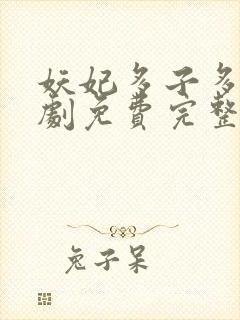 妖妃多子多
劇免費完整
兔子呆